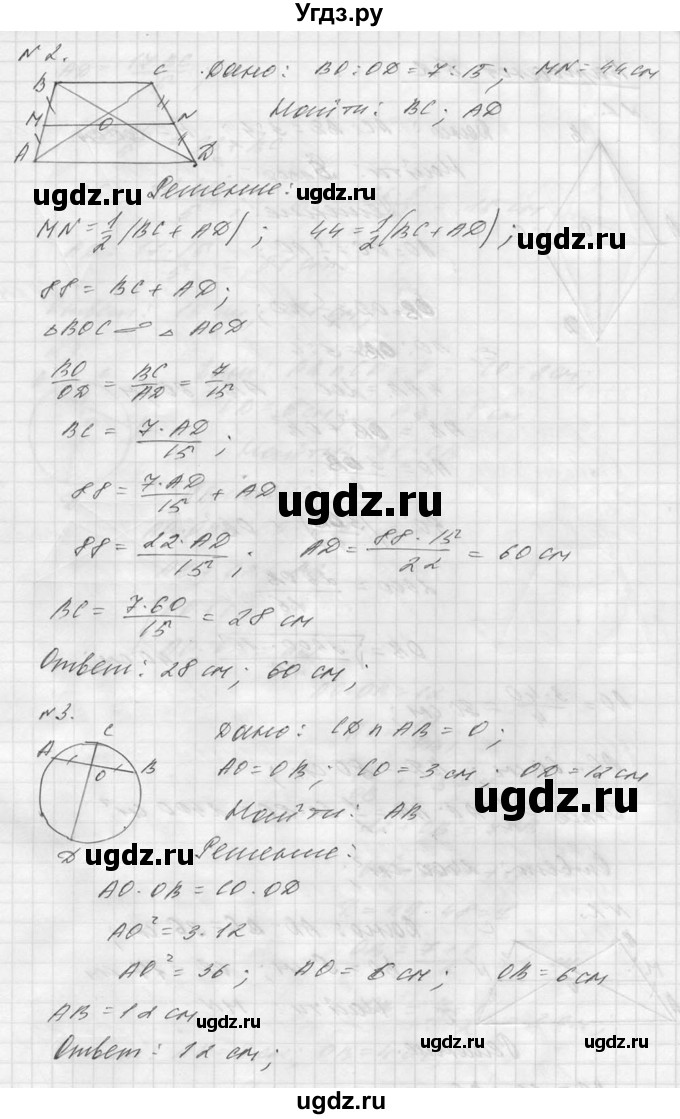 Угдз.ру
№2.
B C
M O N
A D
Дано: BO:OD = 7:15; MN = 44 см
Найти: BC; AD
Решение:
MN = 1/2 (BC + AD); 44 = 1/2 (BC + AD);
ugdz.ru ugdz.ru
ugdz.ru
88 = BC + AD;
△BOC ∽ △AOD
BO/OD = BC/AD = 7/15
BC = 7·AD/15;
88 = 7·AD/15 + AD
ugdz.ru
88 = 22·AD/15; AD = 88·15/22 = 60 см
BC = 7·60/15 = 28 см
ugdz.ru
Ответ: 28 см; 60 см;
№3.
A C
O B
D
Дано: CD ∩ AB = O;
AO = OB; CO = 3 см; OD = 12 см
ugdz.ru
Найти: AB
ugdz.ru
Решение:
AO·OB = CO·OD
AO² = 3·12
AO² = 36; AO = 6 см; OB = 6 см
AB = 12 см
ugdz.ru
ugdz.ru
Ответ: 12 см;
ugdz.ru